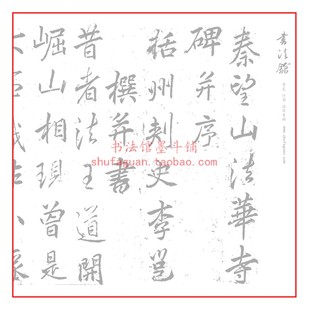 書法館
秦望山法華寺
碑并序
括州刾史李邕
撰并書
昔者法王道開
崛山相現曾是
书法馆墨斗铺
shufaguan.taobao.com